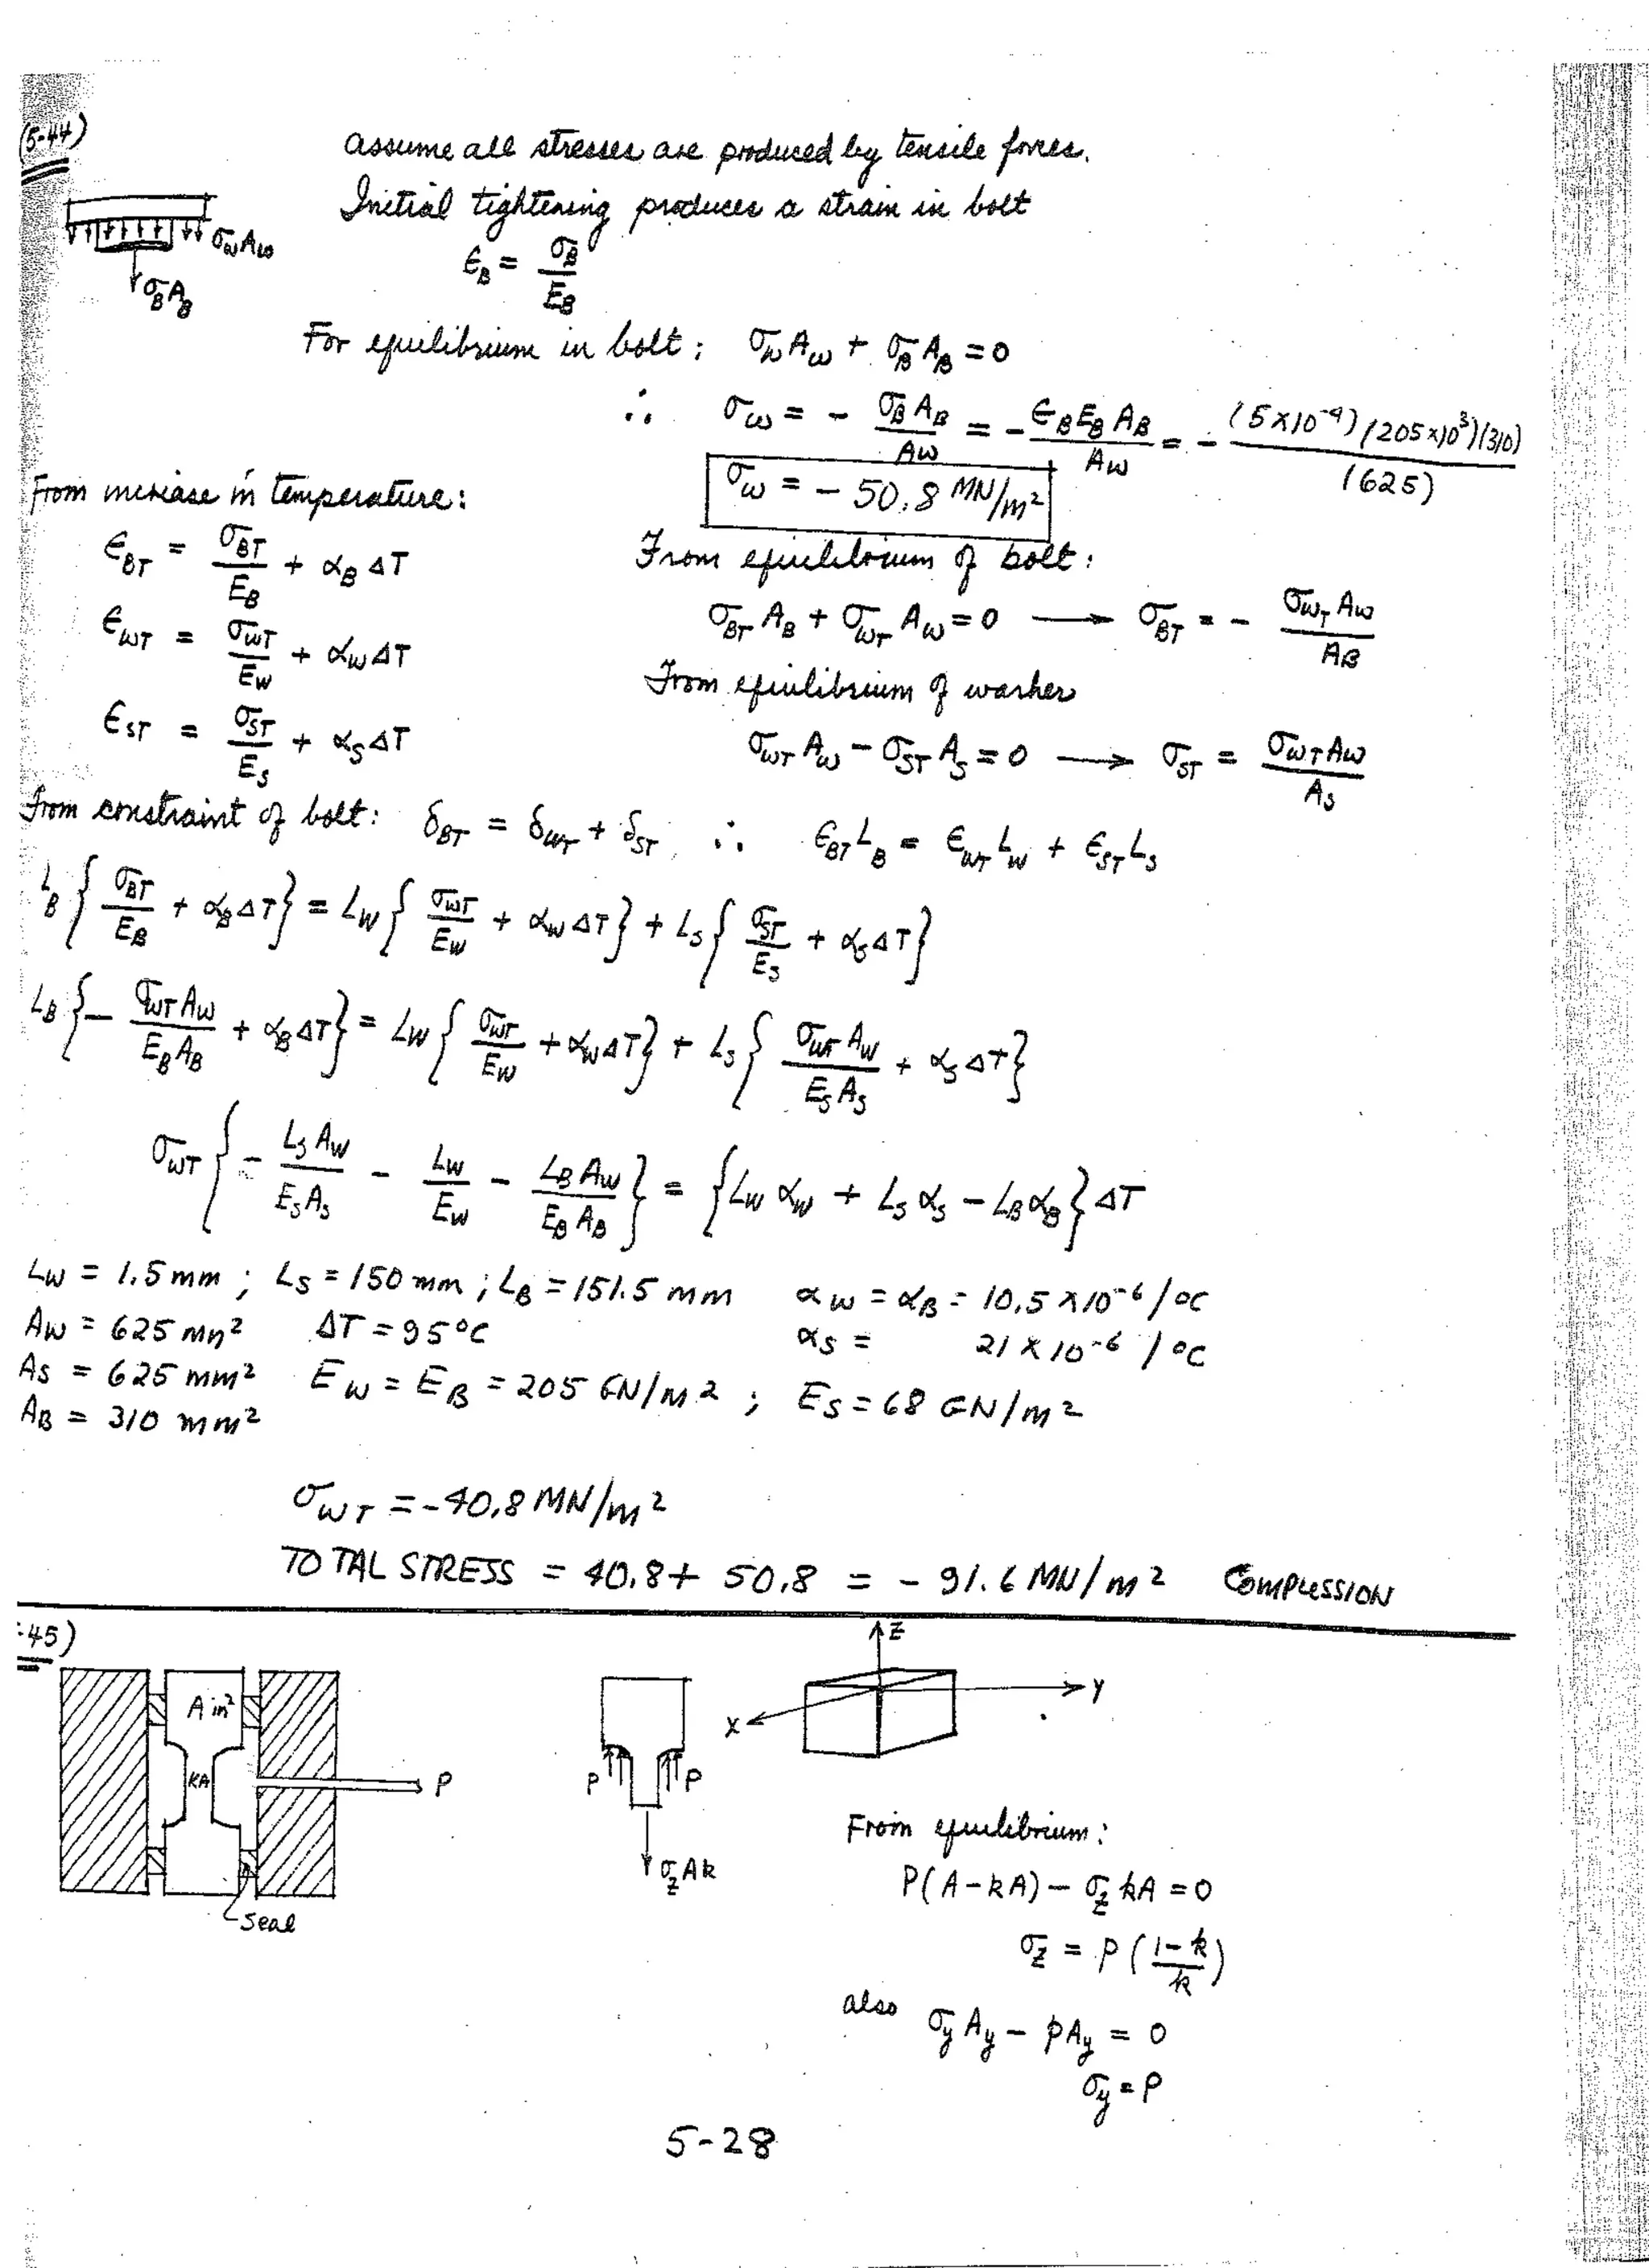 (5-44)
Assume all stresses are produced by tensile forces.
Initial tightening produces a strain in bolt
σ_w A_w
σ_B A_B
ε_B = σ_B / E_B
For equilibrium in bolt: σ_w A_w + σ_B A_B = 0
∴ σ_w = - σ_B A_B / A_w = - ε_B E_B A_B / A_w = - (5×10⁻⁴)(205×10³)(310) / (625)
σ_w = - 50.8 MN/m²
From increase in temperature:
ε_BT = σ_BT / E_B + α_B ΔT
ε_WT = σ_WT / E_W + α_W ΔT
ε_ST = σ_ST / E_S + α_S ΔT
From equilibrium of bolt:
σ_BT A_B + σ_WT A_W = 0 → σ_BT = - σ_WT A_W / A_B
From equilibrium of washer
σ_WT A_W - σ_ST A_S = 0 → σ_ST = σ_WT A_W / A_S
From constraint of bolt: δ_BT = δ_WT + δ_ST ∴ ε_BT L_B = ε_WT L_W + ε_ST L_S
L_B { σ_BT / E_B + α_B ΔT } = L_W { σ_WT / E_W + α_W ΔT } + L_S { σ_ST / E_S + α_S ΔT }
L_B { - σ_WT A_W / E_B A_B + α_B ΔT } = L_W { σ_WT / E_W + α_W ΔT } + L_S { σ_WT A_W / E_S A_S + α_S ΔT }
σ_WT { - L_S A_W / E_S A_S - L_W / E_W - L_B A_W / E_B A_B } = { L_W α_W + L_S α_S - L_B α_B } ΔT
L_W = 1.5 mm ; L_S = 150 mm ; L_B = 151.5 mm α_W = α_B = 10.5 × 10⁻⁶ / °C
A_W = 625 mm² ΔT = 95 °C α_S = 21 × 10⁻⁶ / °C
A_S = 625 mm² E_W = E_B = 205 GN/m² ; E_S = 68 GN/m²
A_B = 310 mm²
σ_WT = -40.8 MN/m²
TOTAL STRESS = 40.8 + 50.8 = - 91.6 MN/m² COMPLESSION
-45)
A in²
kA
P
seal
P
P
σ_z Ak
Z
Y
X
From equilibrium:
P(A-kA) - σ_z kA = 0
σ_z = P ( 1-k / k )
also σ_y A_y - pA_y = 0
σ_y = P
5-28